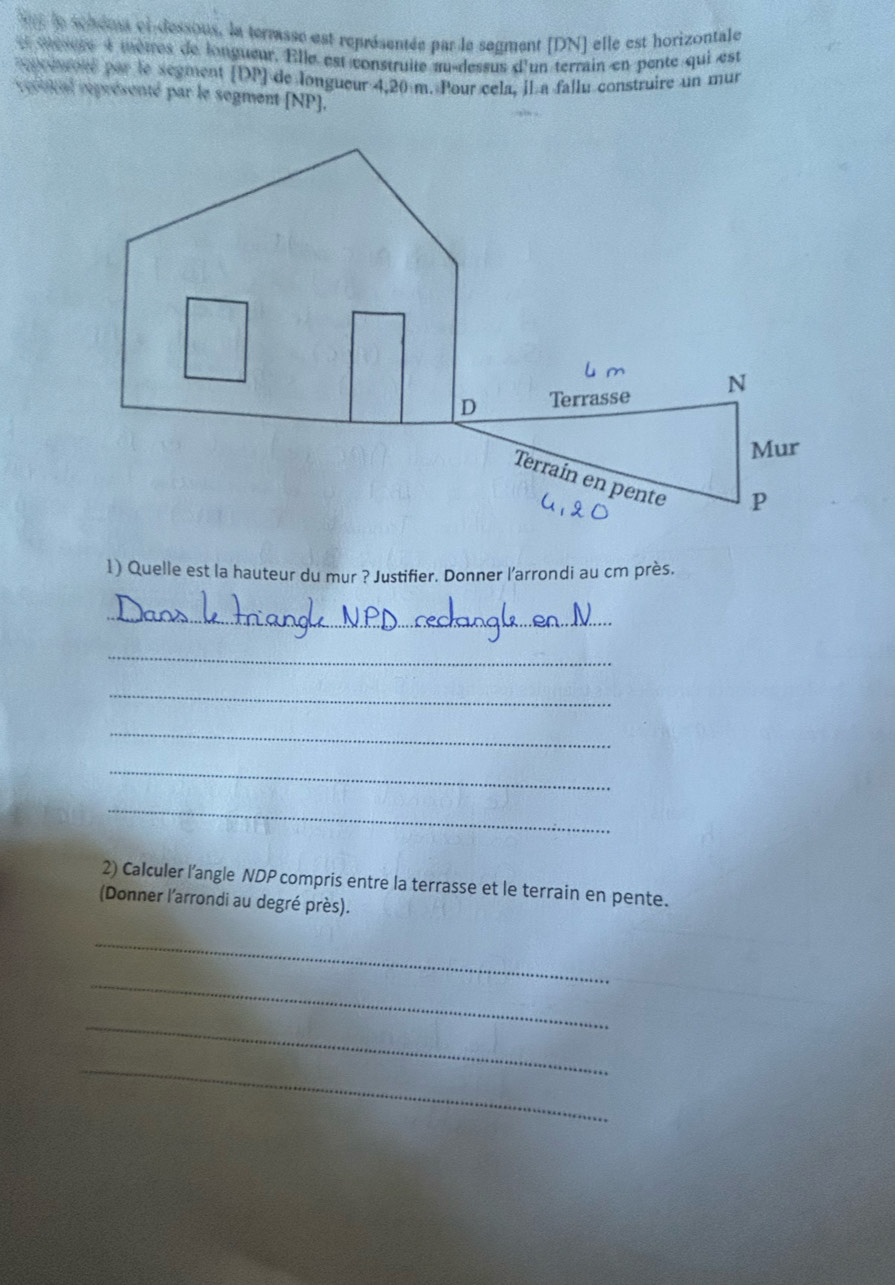 le schéma ci-dessous, la terrasse est représentée par le segment [DN] elle est horizontale
et mesure 4 mètres de longueur. Elle est construite au-dessus d'un terrain en pente qui est
représenté par le segment [DP] de longueur 4,20 m. Pour cela, il a fallu construire un mur
vertical représenté par le segment [NP].
4 m
N
D
Terrasse
Mur
Terrain en pente
P
4,20
1) Quelle est la hauteur du mur ? Justifier. Donner l'arrondi au cm près.
Dans le triangle NPD rectangle en N
2) Calculer l'angle NDP compris entre la terrasse et le terrain en pente.
(Donner l'arrondi au degré près).